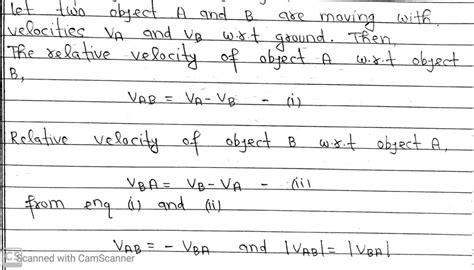 let two object A and B are moving with
velocities VA and VB w.r.t ground. Then,
The relative velocity of object A w.r.t object
B,
VAB = VA - VB - (i)
Relative velocity of object B w.r.t object A,
VBA = VB - VA - (ii)
from enq (i) and (ii)
VAB = - VBA and |VAB| = |VBA|
CS Scanned with CamScanner